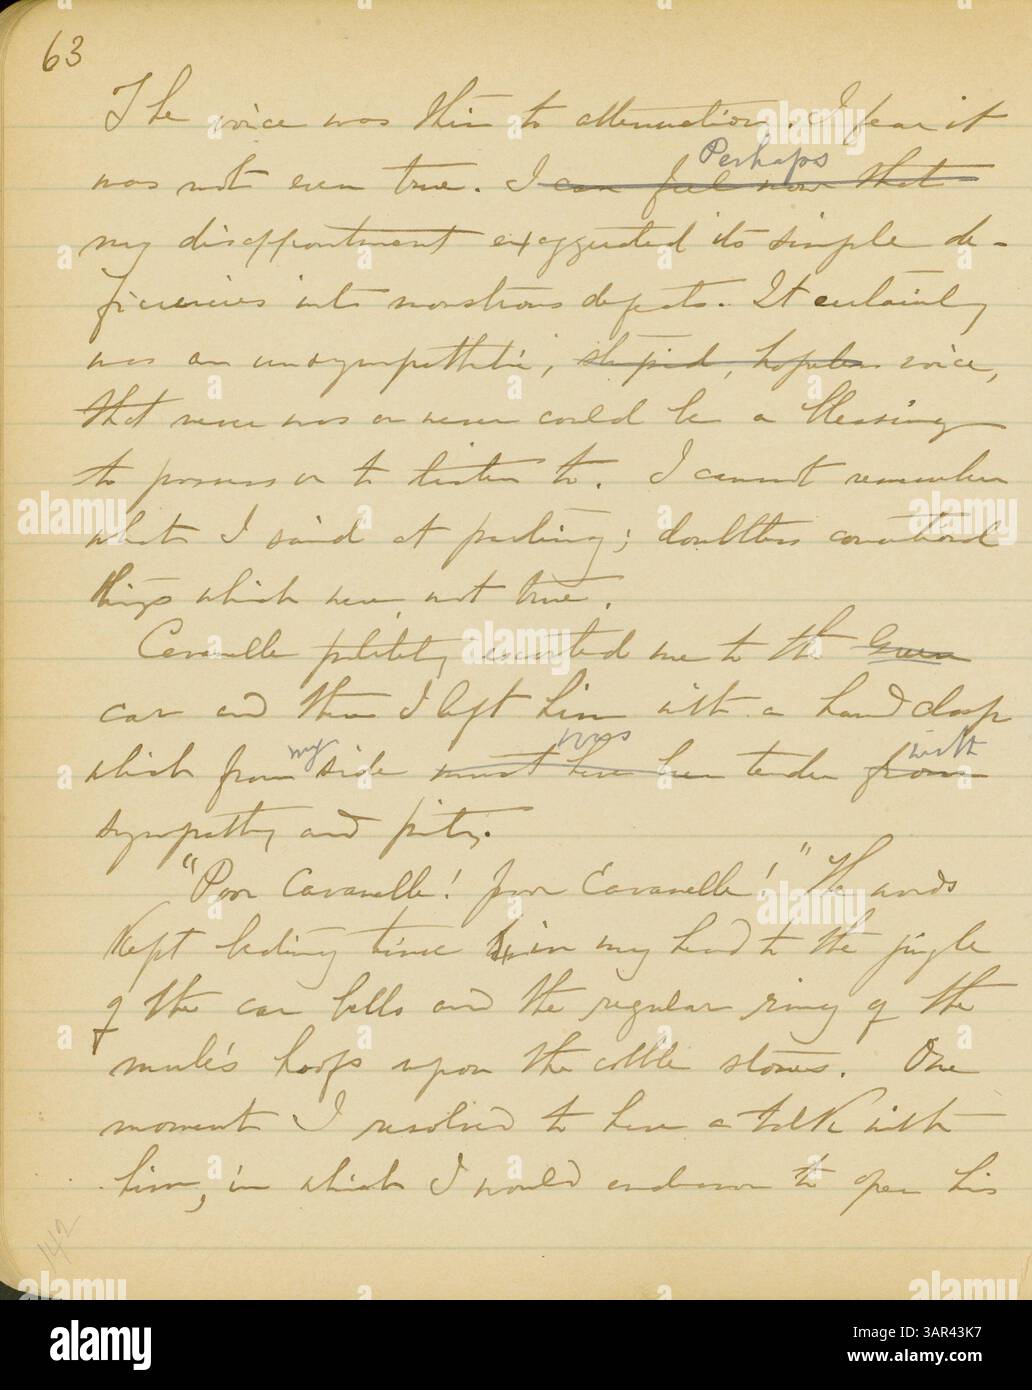 63
The voice was thin to attenuation. I fear it
Perhaps
was not even true. I can feel now that
my disappointment exaggerated its simple de-
ficiencies into monstrous defects. It certainly
was an unsympathetic, stupid, hopeless voice,
that never was or never could be a blessing
to possess or to listen to. I cannot remember
what I said at parting; doubtless conventional
things which were not true.
Cavanelle politely escorted me to the
car and there I left him with a hand clasp
my was with
which from side must have been tender from
sympathy and pity.
"Poor Cavanelle! poor Cavanelle!" The words
kept beating time in my head to the jingle
of the car bells and the regular ring of the
mule's hoofs upon the cobble stones. One
moment I resolved to have a talk with
him, in which I would endeavor to open his
142
alamy
Image ID: 3AR43K7
www.alamy.com